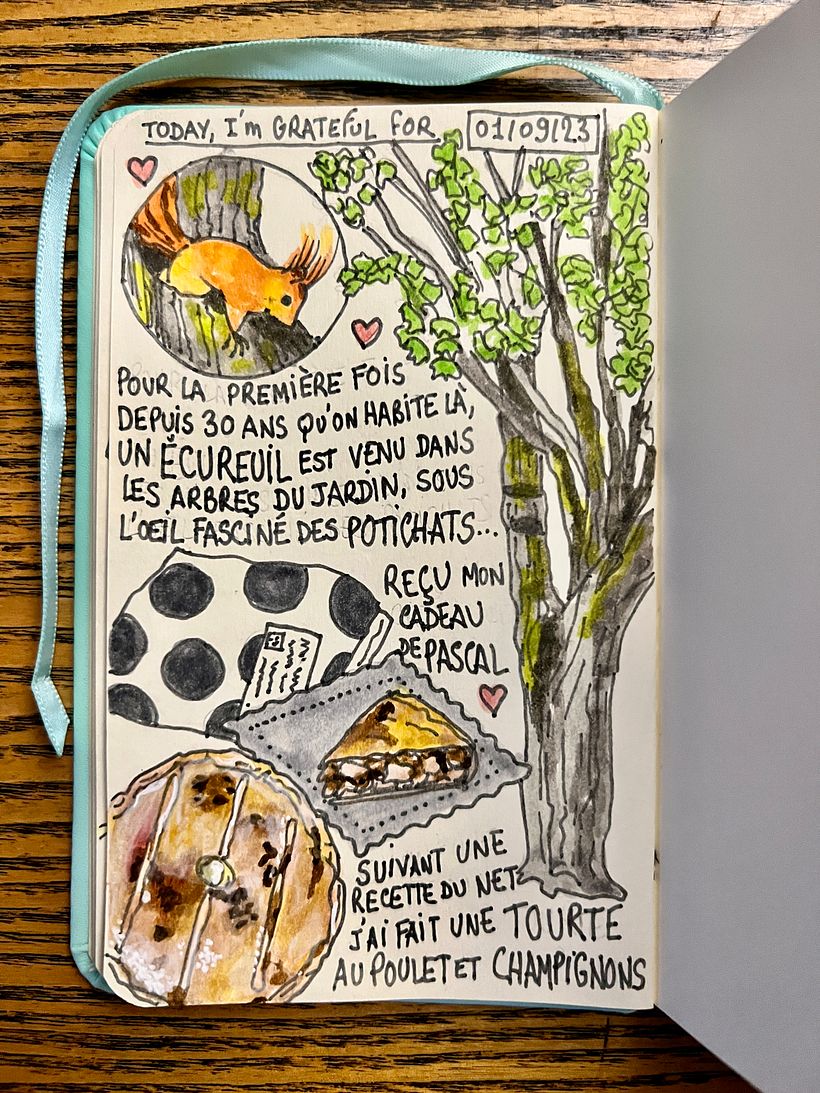 TODAY, I'm GRATEFUL FOR 01/09/23
POUR LA PREMIÈRE FOIS
DEPUIS 30 ANS QU'ON HABITE LÀ,
UN ÉCUREUIL EST VENU DANS
LES ARBRES DU JARDIN, SOUS
L'OEIL FASCINÉ DES POTICHATS...
REÇU MON
CADEAU
DE PASCAL
SUIVANT UNE
RECETTE DU NET
J'AI FAIT UNE TOURTE
AU POULET ET CHAMPIGNONS